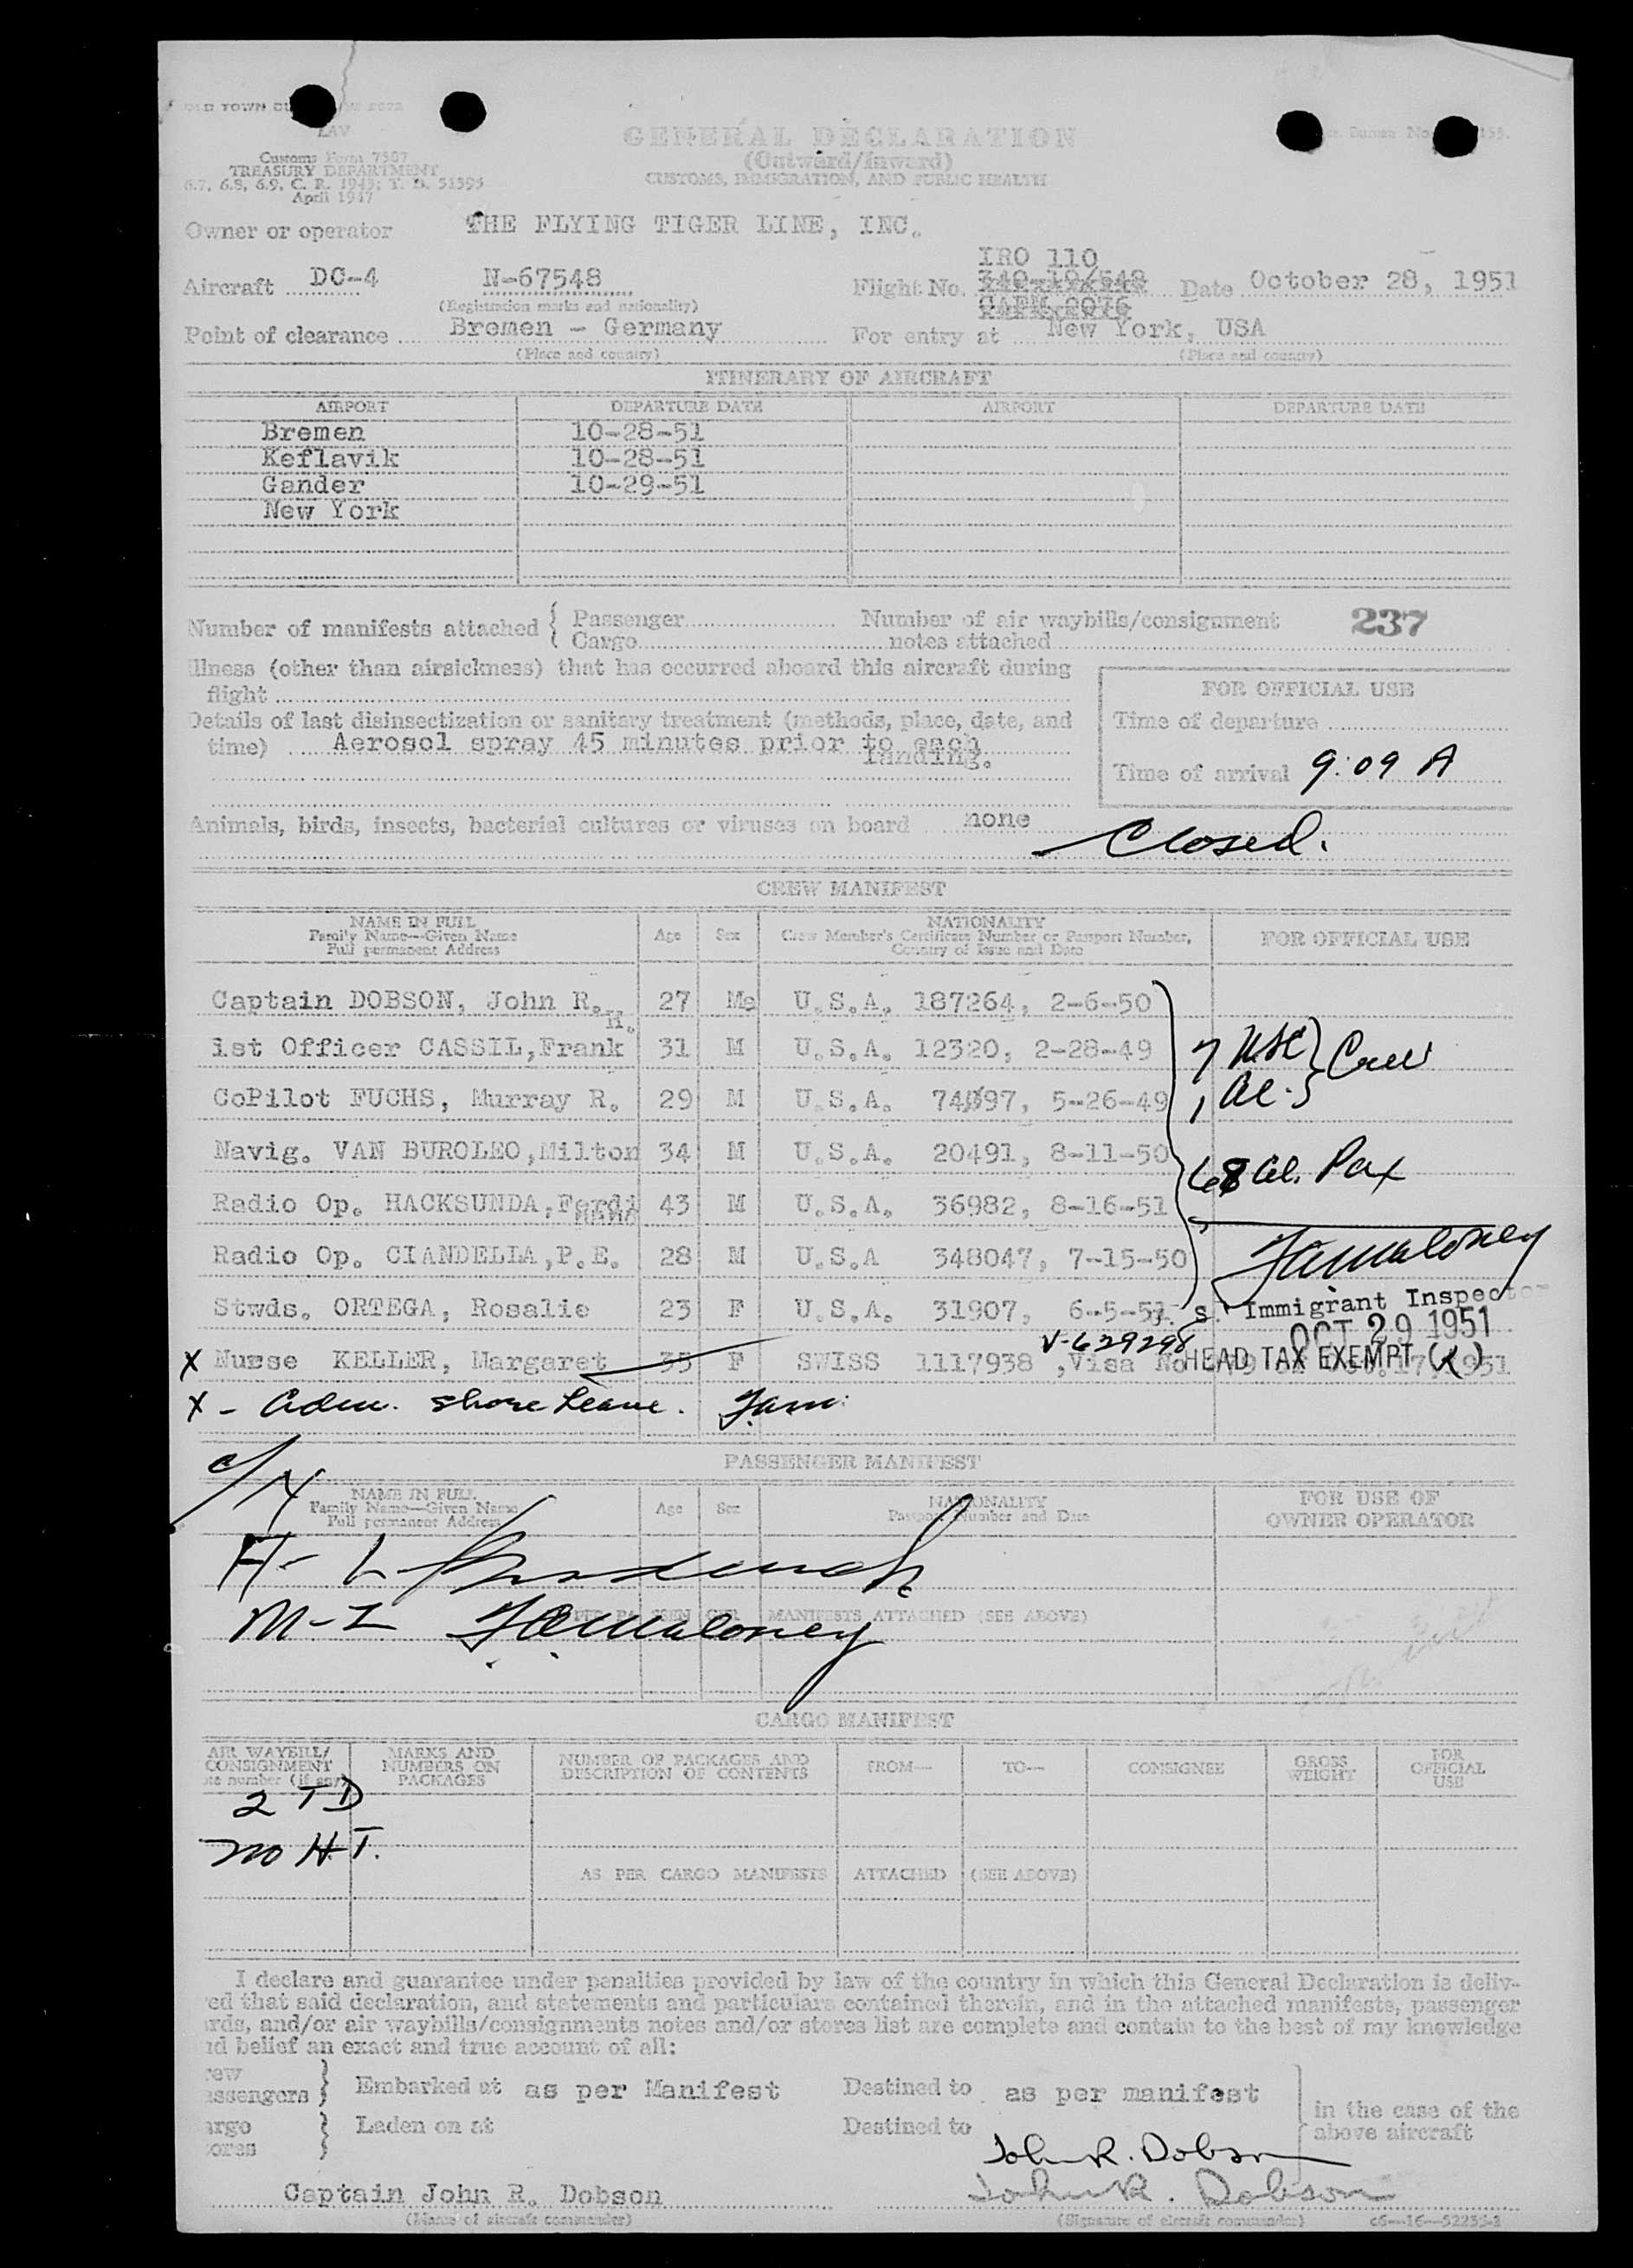 OLD TOWN
Customs Form 7507
TREASURY DEPARTMENT
6.7, 6.8, 6.9, C. R. 1943; T. D. 51595
April 1947
GENERAL DECLARATION
(Outward/Inward)
CUSTOMS, IMMIGRATION, AND PUBLIC HEALTH
Owner or operator THE FLYING TIGER LINE, INC.
IRO 110
Aircraft DC-4 N-67548 Flight No. Date October 28, 1951
(Registration marks and nationality)
Point of clearance Bremen - Germany For entry at New York, USA
(Place and country) (Place and country)
ITINERARY OF AIRCRAFT
AIRPORT DEPARTURE DATE AIRPORT DEPARTURE DATE
Bremen 10-28-51
Keflavik 10-28-51
Gander 10-29-51
New York
Number of manifests attached { Passenger Number of air waybills/consignment 237
Cargo notes attached
Illness (other than airsickness) that has occurred aboard this aircraft during
flight
FOR OFFICIAL USE
Details of last disinsectization or sanitary treatment (methods, place, date, and
time) Aerosol spray 45 minutes prior to each
landing.
Time of departure
Time of arrival 9:09 A
Animals, birds, insects, bacterial cultures or viruses on board none
Closed.
CREW MANIFEST
NAME IN FULL Age Sex NATIONALITY FOR OFFICIAL USE
Family Name—Given Name Crew Member's Certificate Number or Passport Number,
Full permanent Address Country of Issue and Date
Captain DOBSON, John R. 27 Ma U.S.A. 187264, 2-6-50
H.
1st Officer CASSIL,Frank 31 M U.S.A. 12320, 2-28-49 7 USC } Crew
CoPilot FUCHS, Murray R. 29 M U.S.A. 5-26-49 1 al.
Navig. VAN BUROLEO,Milton 34 M U.S.A. 20491, 8-11-50
68 al. Pax
Radio Op. HACKSUNDA,Ferdi 43 M U.S.A. 36982, 8-16-51
nand
Radio Op. CIANDELIA,P.E. 28 M U.S.A 348047, 7-15-50 F.A. Maloney
Stwds. ORTEGA, Rosalie 23 F U.S.A. 31907, 6-5-51 S. Immigrant Inspector
OCT 29 1951
V-629298
X Nurse KELLER, Margaret 35 F SWISS 1117938 ,Visa No HEAD TAX EXEMPT (x) 1951
X - adm. shore Leave. Fam.
PASSENGER MANIFEST
NAME IN FULL Age Sex NATIONALITY FOR USE OF
Family Name—Given Name Passport Number and Date OWNER OPERATOR
Full permanent Address
H- L
AS PER PASSENGER MANIFESTS ATTACHED (SEE ABOVE)
M-I F.A. Maloney
CARGO MANIFEST
AIR WAYBILL/ MARKS AND NUMBER OF PACKAGES AND FROM— TO— CONSIGNEE GROSS FOR
CONSIGNMENT NUMBERS ON DESCRIPTION OF CONTENTS WEIGHT OFFICIAL
note number (if any) PACKAGES USE
2 TD
no H.T.
AS PER CARGO MANIFESTS ATTACHED (SEE ABOVE)
I declare and guarantee under penalties provided by law of the country in which this General Declaration is deliv-
ed that said declaration, and statements and particulars contained therein, and in the attached manifests, passenger
rds, and/or air waybills/consignments notes and/or stores list are complete and contain to the best of my knowledge
nd belief an exact and true account of all:
rew
assengers } Embarked at as per Manifest Destined to as per manifest
in the case of the
argo } Laden on at Destined to above aircraft
ores
John R. Dobson
Captain John R. Dobson John R. Dobson
(Name of aircraft commander) (Signature of aircraft commander) c6—16—52253-1